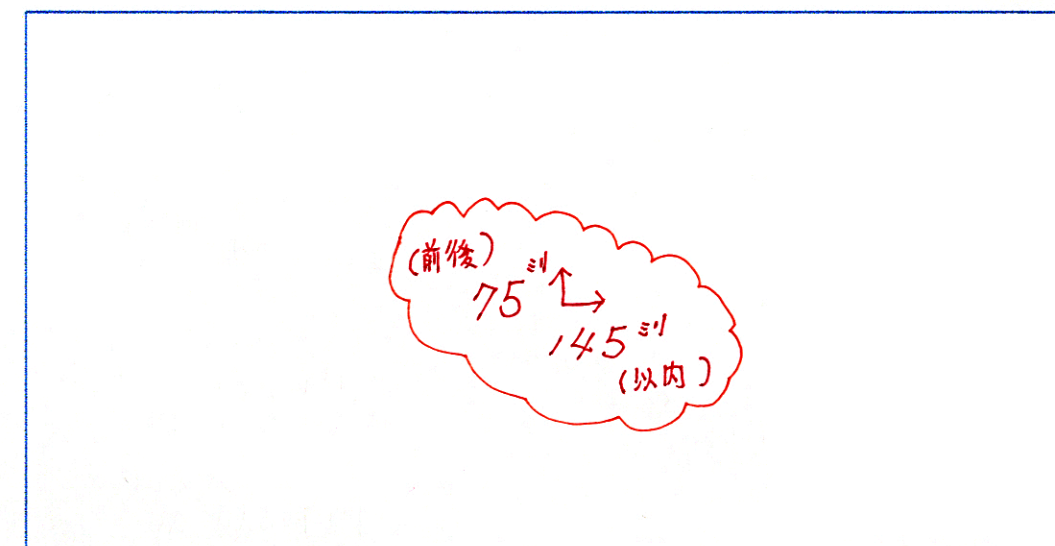 (前後)
75ミリ
145ミリ
(以内)